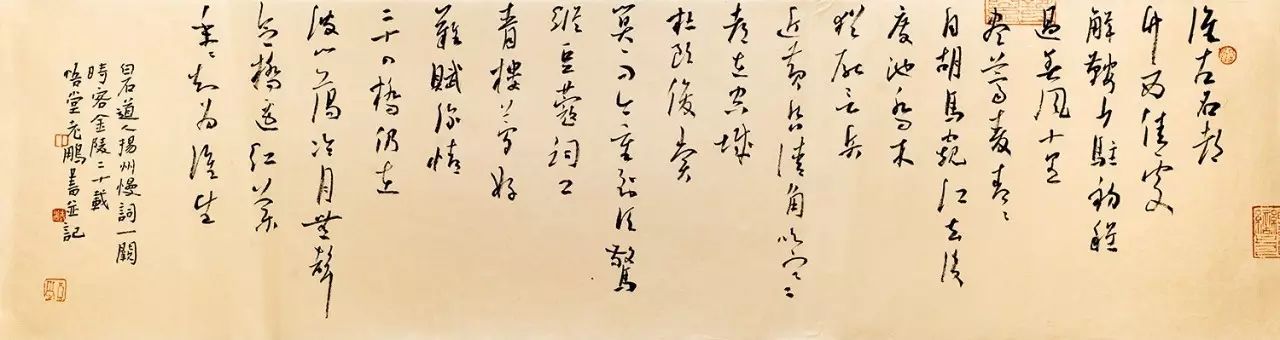 淮左名都
竹西佳處
解鞍少駐初程
過春風十里
盡薺麥青〻
自胡馬窺江去後
廢池喬木
猶厭言兵
漸黃昏清角吹寒
都在空城
杜郎俊賞
算而今重到須驚
縱豆蔻詞工
青樓夢好
難賦深情
二十四橋仍在
波心蕩冷月無聲
念橋邊紅藥
年〻知為誰生
白石道人揚州慢詞一闋
時客金陵二十載
悟堂元鵬書並記